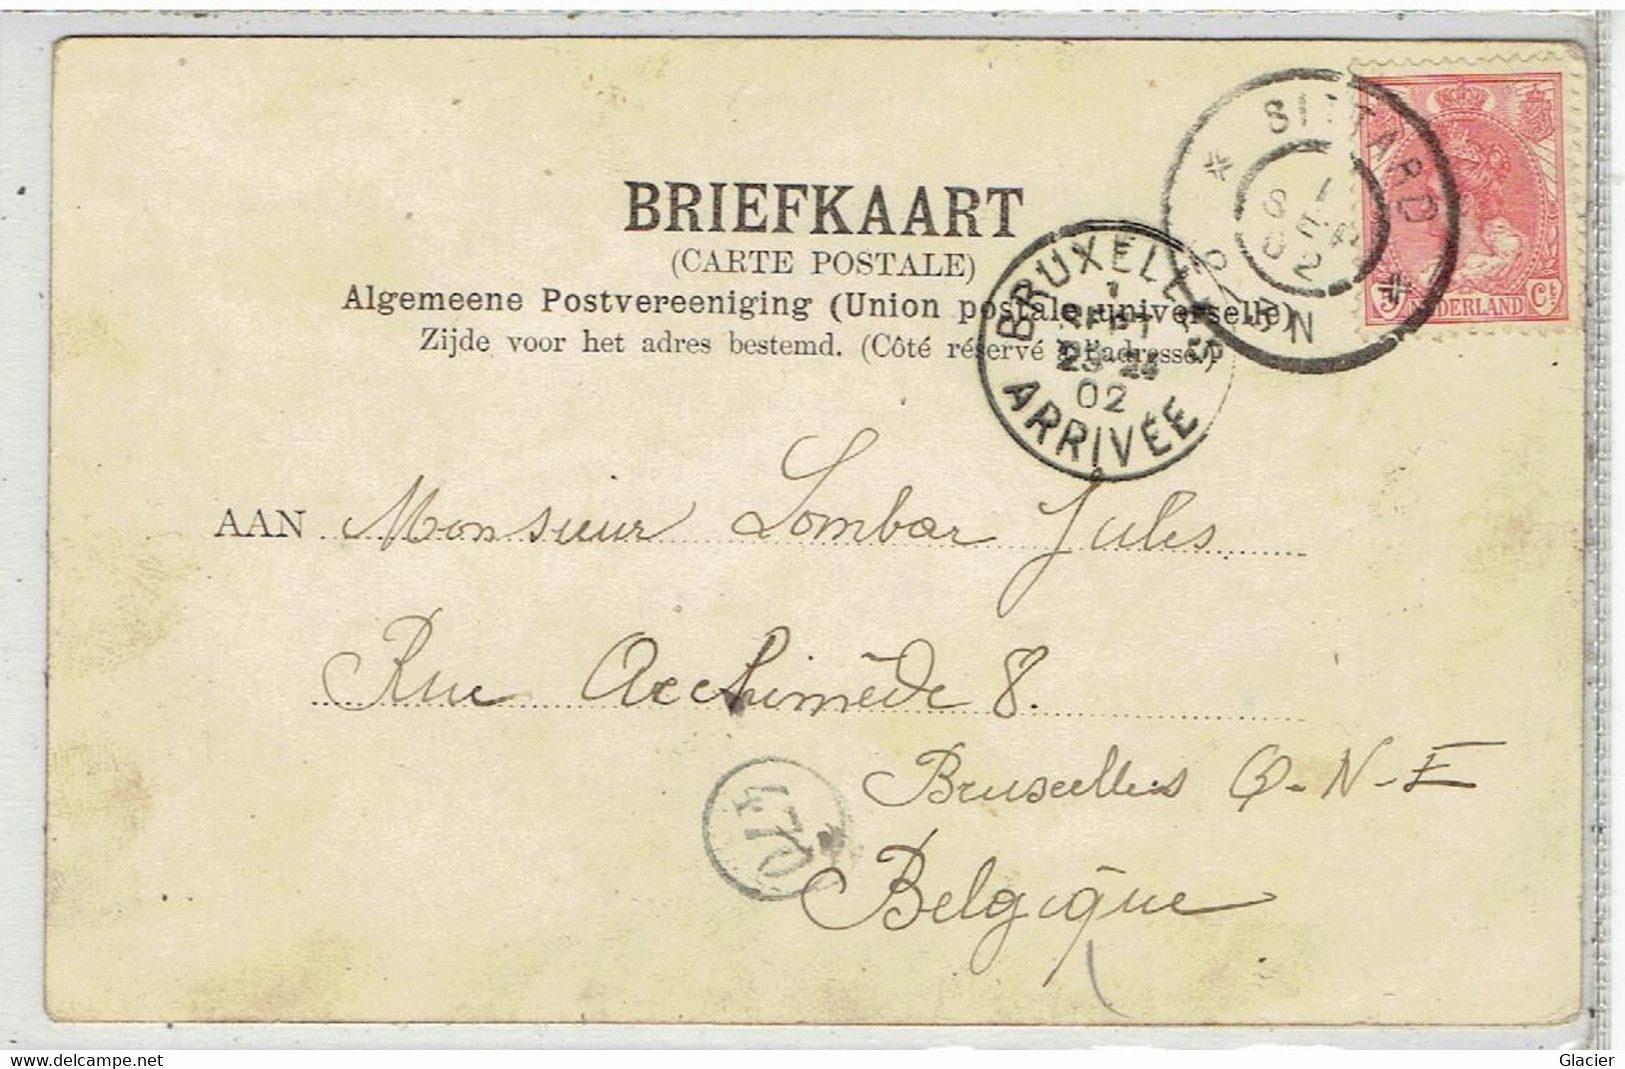 BRIEFKAART
(CARTE POSTALE)
Algemeene Postvereeniging (Union postale universelle)
Zijde voor het adres bestemd. (Côté réservé à l'adresse.)
SITTARD
5 NEDERLAND Ct
BRUXELLES
1
SEPT
23-24
02
ARRIVÉE
AAN Monsieur Lombar Jules
Rue Archimède 8.
Bruxelles Q-N-E
Belgique
470
Glacier